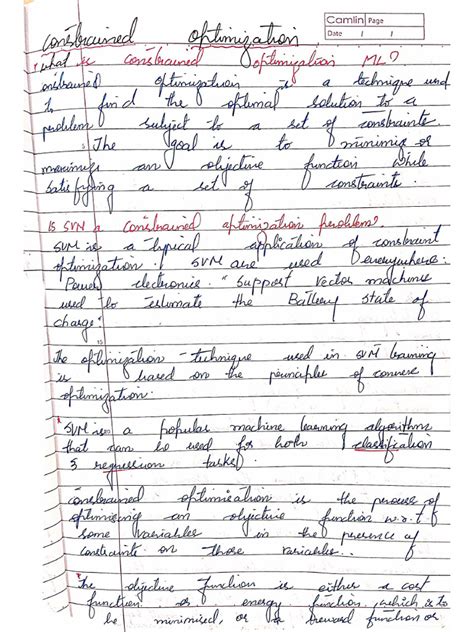 Camlin Page
Date / /
constrained optimization
* what is constrained optimization ML?
onstrained optimization is a technique used
to find the optimal solution to a
problem subject to a set of constraints.
The goal is to minimiz or
maximize an objective function while
satisfying a set of constraints.
IS SVM a constrained optimization problem?
SVM is a typical application of constraint
optimization. SVM are used everywhere.
Power electronic "Support vector machine
used to Estimate the Battery state of
charge"
The optimization technique used in SVM learning
is based on the principles of convex
optimization.
* SVM is a popular machine learning algorithms
that can be used for both classification
& regression tasks.
constrained optimization is the process of
optimising an objective function w.r.t
some variables in the presence of
constraints on those variables..
* The objective function is either a cost
function or energy function, which is to
be minimised, or a reward function or